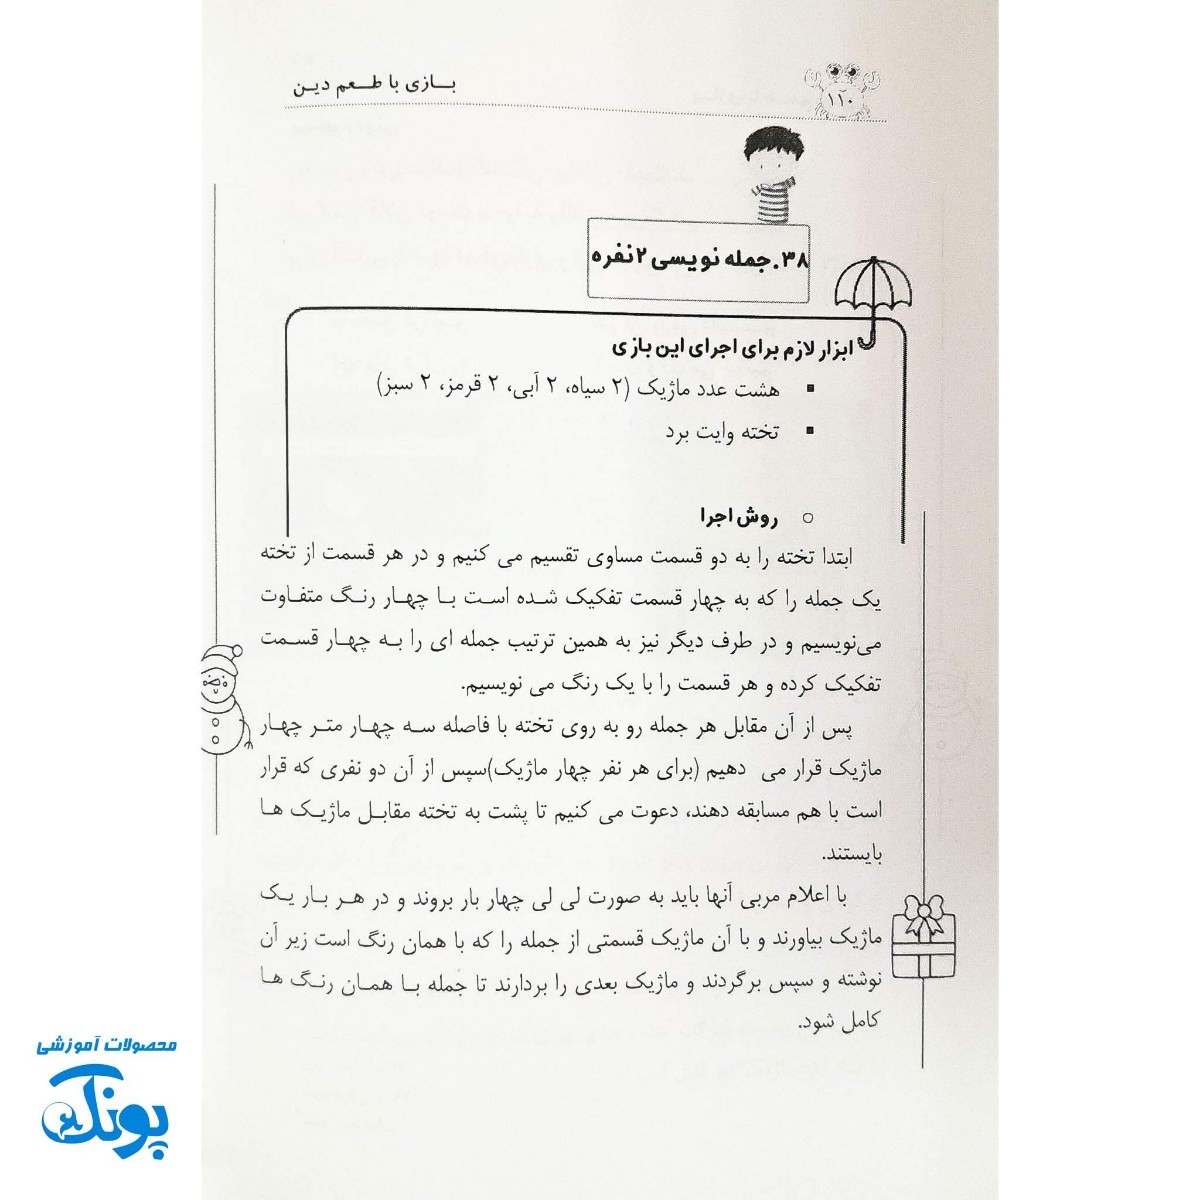 بازی با طعم دین
۱۱۰
۳۸.جمله نویسی ۲نفره
ابزار لازم برای اجرای این بازی
▪ هشت عدد ماژیک (۲ سیاه، ۲ آبی، ۲ قرمز، ۲ سبز)
▪ تخته وایت برد
○ روش اجرا
ابتدا تخته را به دو قسمت مساوی تقسیم می کنیم و در هر قسمت از تخته
یک جمله را که به چهار قسمت تفکیک شده است با چهار رنگ متفاوت
می‌نویسیم و در طرف دیگر نیز به همین ترتیب جمله ای را به چهار قسمت
تفکیک کرده و هر قسمت را با یک رنگ می نویسیم.
پس از آن مقابل هر جمله رو به روی تخته با فاصله سه چهار متر چهار
ماژیک قرار می دهیم (برای هر نفر چهار ماژیک)سپس از آن دو نفری که قرار
است با هم مسابقه دهند، دعوت می کنیم تا پشت به تخته مقابل ماژیک ها
بایستند.
با اعلام مربی آنها باید به صورت لی لی چهار بار بروند و در هر بار یک
ماژیک بیاورند و با آن ماژیک قسمتی از جمله را که با همان رنگ است زیر آن
نوشته و سپس برگردند و ماژیک بعدی را بردارند تا جمله با همان رنگ ها
کامل شود.
محصولات آموزشی
پونک